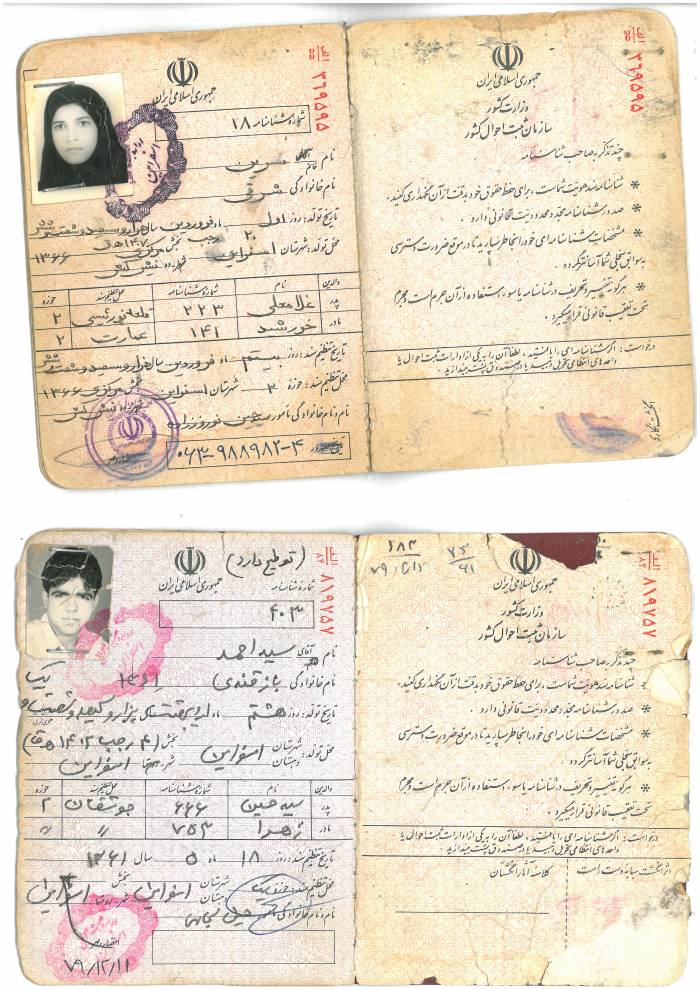 الف
۵۵
۳۶۹۵۹۵
جمهوری اسلامی ایران
شماره شناسنامه ۱۸
نام آقای خانم نسرین
نام خانوادگی شرقی
تاریخ تولد: روز اول ماه فروردین سال هزار و سیصد و شصت و شش
محل تولد: شهرستان اسفراین بخش مرکزی ۱۳۶۶
والدین نام شماره شناسنامه محل تنظیم سند حوزه
پدر غلامعلی ۲۲۳ ۲
مادر خورشید ۱۴۱ عمارت ۲
تاریخ تنظیم سند: روز بیستم ماه فروردین سال هزار و سیصد و شصت و شش
محل تنظیم سند: حوزه ۲ شهرستان اسفراین بخش مرکزی ۱۳۶۶
نام و نام خانوادگی مامور نوروززاده
۰۶۳-۹۸۸۹۸۲-۴
الف
۵۵
۳۶۹۵۹۵
جمهوری اسلامی ایران
وزارت کشور
سازمان ثبت احوال کشور
چند تذکر به صاحب شناسنامه
* شناسنامه سند هویت شماست، برای حفظ حقوق خود به دقت از آن نگهداری کنید.
* صدور شناسنامه مجدد محدودیت قانونی دارد.
* مشخصات شناسنامه‌ای خود را بخاطر بسپارید تا در موقع ضرورت دسترسی
به سوابق سجلی شما آسانتر گردد.
* هرگونه تغییر و تحریف در شناسنامه یا سوء استفاده از آن جرم است و مجرم
تحت تعقیب قانونی قرار میگیرد.
درخواست: اگر شناسنامه‌ای را یافتید، لطفاً آن را به یکی از ادارات ثبت احوال یا
واحدهای انتظامی تحویل دهید یا در صندوق پست بیندازید.
اثر انگشت
الف
۸۴
۸۱۹۷۵۷
(توضیح دارد)
جمهوری اسلامی ایران
شماره شناسنامه
۴۰۳
نام آقای سید احمد
نام خانوادگی بازقندی ۱۳۶۱
تاریخ تولد: روز هشتم ماه اردیبهشت سال هزار و سیصد و شصت و یک
محل تولد: شهرستان دهستان اسفراین بخش (۴ رجب ۱۴۰۲ ه ق)
اسفراین
والدین نام شماره شناسنامه محل تنظیم سند حوزه
پدر سید حسین ۶۶۶ جوشقان ۲
مادر زهرا ۷۵۳ // //
تاریخ تنظیم سند: روز ۱۸ ماه ۵ سال ۱۳۶۱
محل تنظیم سند: حوزه یک شهرستان دهستان اسفراین بخش اسفراین
نام و نام خانوادگی مامور
۷۹/۱۲/۱۱
الف
۸۴
۸۱۹۷۵۷
جمهوری اسلامی ایران
وزارت کشور
سازمان ثبت احوال کشور
چند تذکر به صاحب شناسنامه
* شناسنامه سند هویت شماست، برای حفظ حقوق خود به دقت از آن نگهداری کنید.
* صدور شناسنامه مجدد محدودیت قانونی دارد.
* مشخصات شناسنامه‌ای خود را بخاطر بسپارید تا در موقع ضرورت دسترسی
به سوابق سجلی شما آسانتر گردد.
* هرگونه تغییر و تحریف در شناسنامه یا سوء استفاده از آن جرم است و مجرم
تحت تعقیب قانونی قرار میگیرد.
درخواست: اگر شناسنامه‌ای را یافتید، لطفاً آن را به یکی از ادارات ثبت احوال یا
واحدهای انتظامی تحویل دهید یا در صندوق پست بیندازید.
اثر انگشت سبابه دست است
کلاسه آثار انگشتان